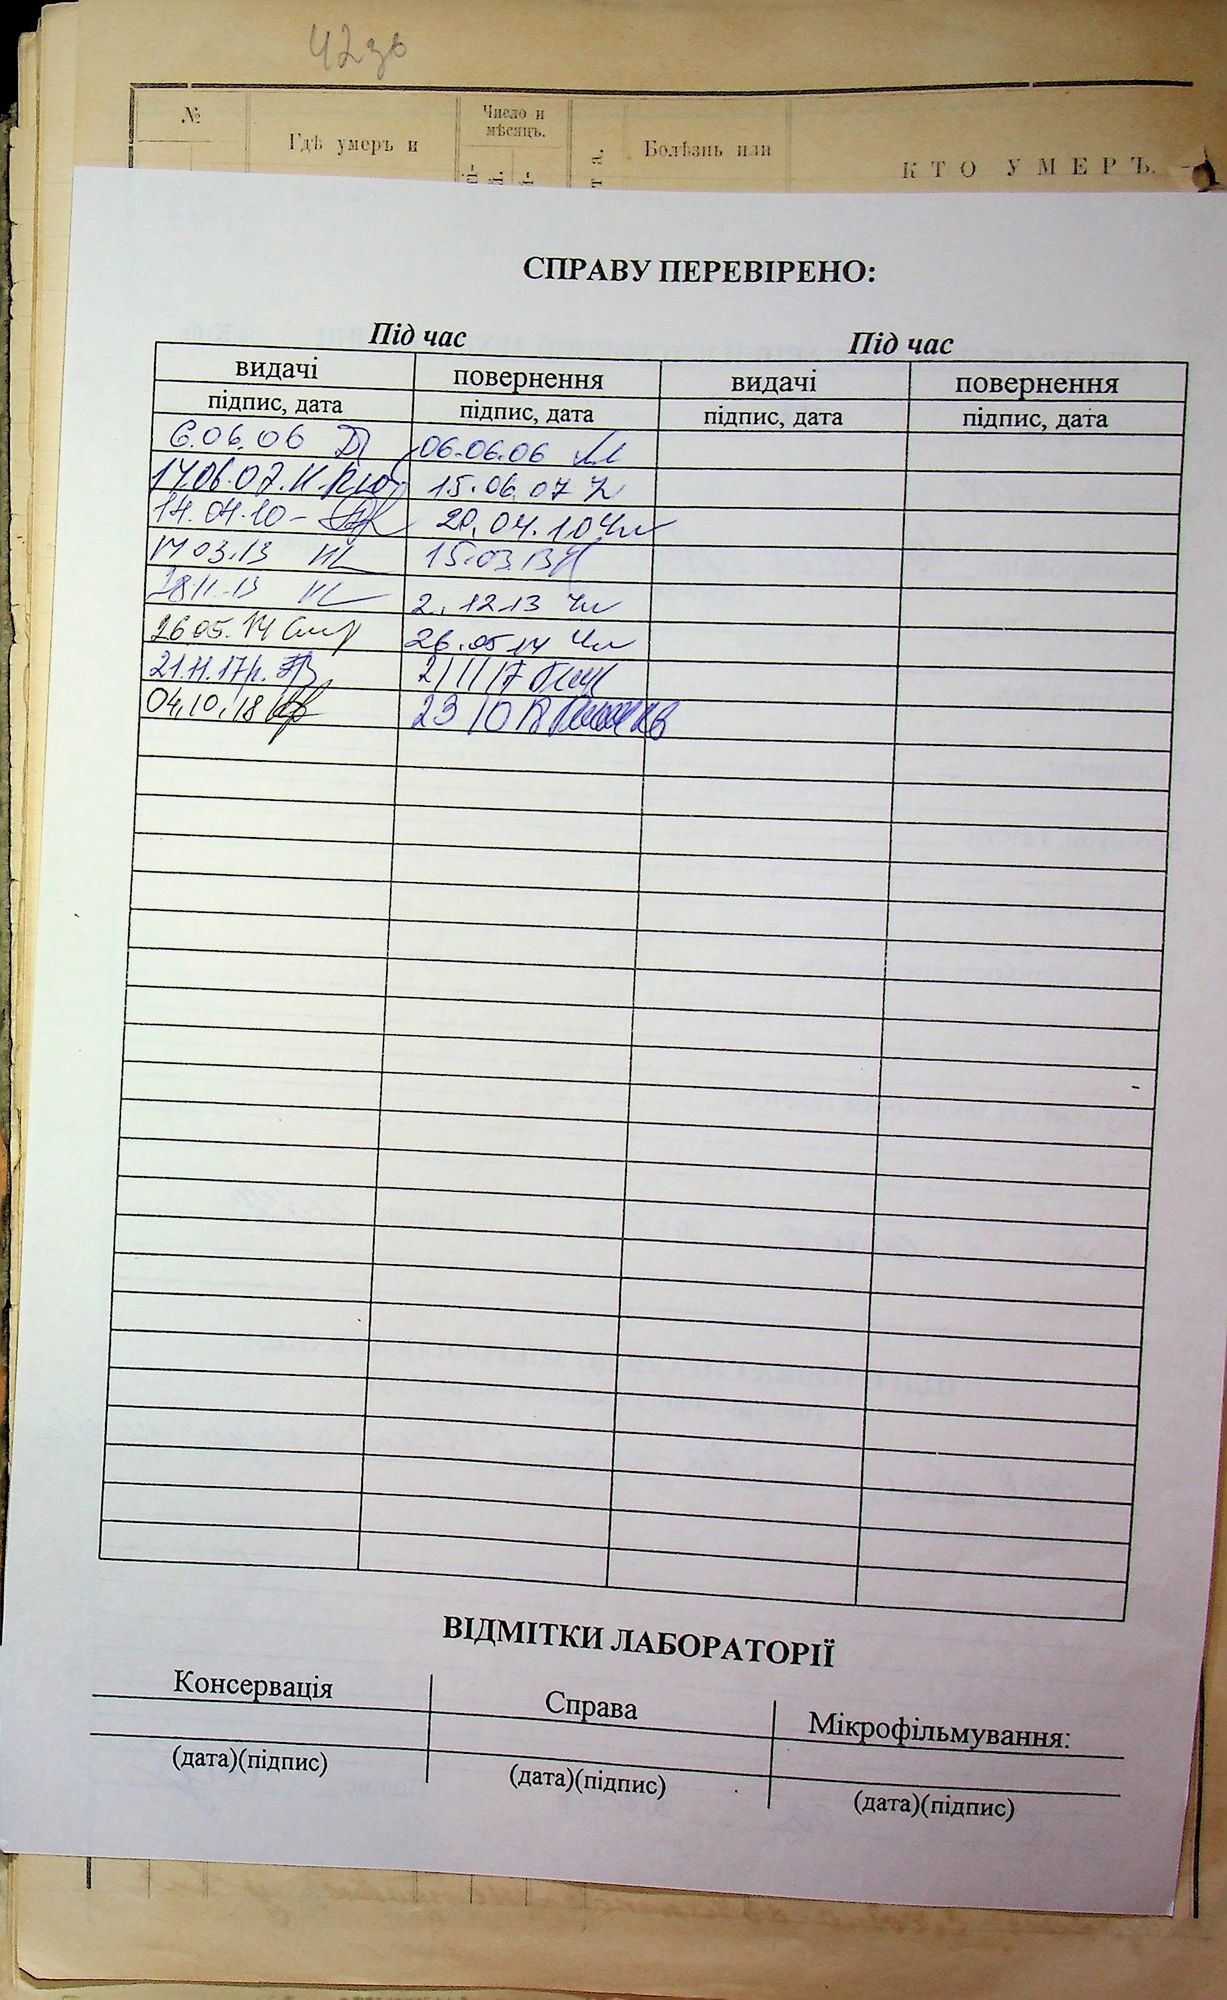 42зв
№
Гдѣ умеръ и
Число и
мѣсяцъ.
Болѣзнь или
КТО УМЕРЪ.
СПРАВУ ПЕРЕВІРЕНО:
Під час Під час
видачі повернення видачі повернення
підпис, дата підпис, дата підпис, дата підпис, дата
6.06.06 06.06.06
14.06.07. 15.06.07
14.04.10 - 20.04.10
14 03.13 15.03.13
28.11.13 2.12.13
26 05.14 26.05 14
21.11.17р. 21 11 17
04.10.18 23 10 18
ВІДМІТКИ ЛАБОРАТОРІЇ
Консервація Справа Мікрофільмування:
(дата)(підпис) (дата)(підпис) (дата)(підпис)